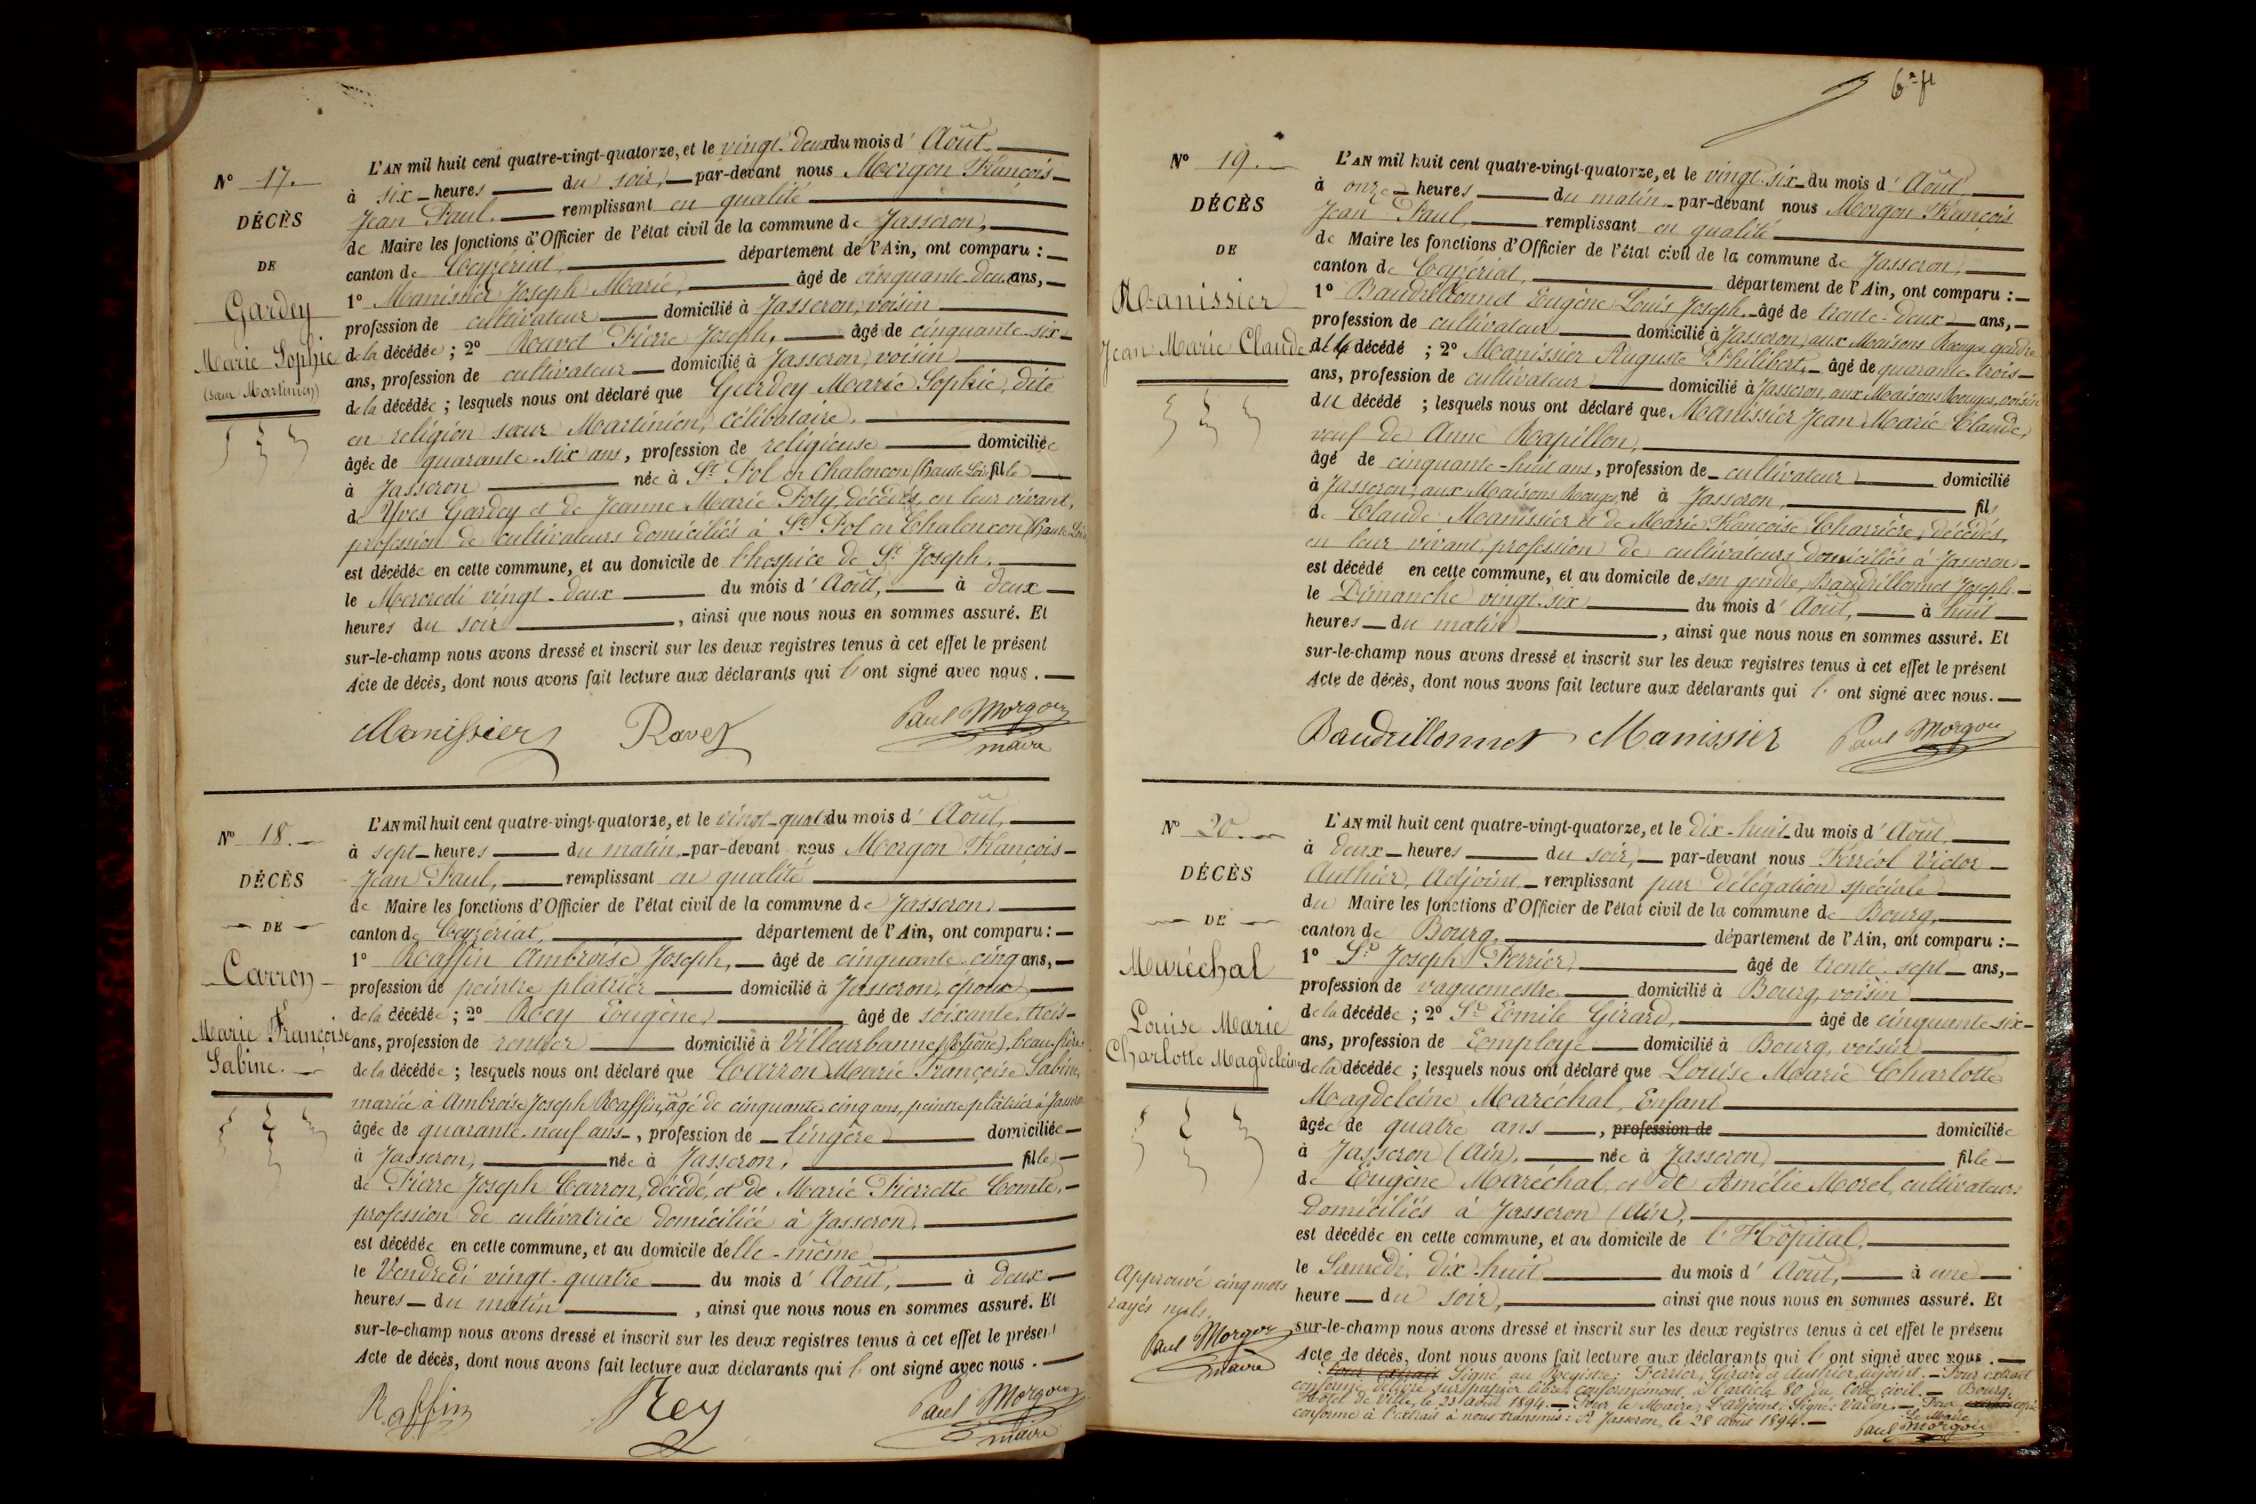 N° 17.
DÉCÈS
DE
Gardey
Marie Sophie
(sœur Martinien)
L'AN mil huit cent quatre-vingt-quatorze, et le vingt-deux du mois d'Août
à six heures du soir, par-devant nous Morgon François
Jean Paul, remplissant en qualité
de Maire les fonctions d'Officier de l'état civil de la commune de Jasseron,
canton de Ceyzériat, département de l'Ain, ont comparu :
1° Manissier Joseph Marie, âgé de cinquante-deux ans,
profession de cultivateur domicilié à Jasseron, voisin
de la décédée ; 2° Ravet Pierre Joseph, âgé de cinquante-six
ans, profession de cultivateur domicilié à Jasseron, voisin
de la décédée ; lesquels nous ont déclaré que Gardey Marie Sophie, dite
en religion sœur Martinien, célibataire,
âgée de quarante-six ans, profession de religieuse domiciliée
à Jasseron née à St Pol en Chalencon (Haute Loire) fille
de Yves Gardey et de Jeanne Marie Poty, décédés, en leur vivant,
profession de cultivateurs domiciliés à St Pol en Chalencon (Haute Loire)
est décédée en cette commune, et au domicile de l'hospice de St Joseph,
le Mercredi vingt-deux du mois d'Août, à deux
heures du soir, ainsi que nous nous en sommes assuré. Et
sur-le-champ nous avons dressé et inscrit sur les deux registres tenus à cet effet le présent
Acte de décès, dont nous avons fait lecture aux déclarants qui l'ont signé avec nous.
Manissier Ravet Paul Morgon
maire
N° 18.
DÉCÈS
DE
Carron
Marie Françoise
Sabine.
L'AN mil huit cent quatre-vingt-quatorze, et le vingt-quatre du mois d'Août,
à sept heures du matin, par-devant nous Morgon François
Jean Paul, remplissant en qualité
de Maire les fonctions d'Officier de l'état civil de la commune de Jasseron,
canton de Ceyzériat, département de l'Ain, ont comparu :
1° Raffin Ambroise Joseph, âgé de cinquante-cinq ans,
profession de peintre plâtrier domicilié à Jasseron, époux
de la décédée ; 2° Rey Eugène, âgé de soixante-trois
ans, profession de rentier domicilié à Villeurbanne (Rhône), beau-frère
de la décédée ; lesquels nous ont déclaré que Carron Marie Françoise Sabine,
mariée à Ambroise Joseph Raffin, âgé de cinquante-cinq ans, peintre plâtrier à Jasseron
âgée de quarante-neuf ans, profession de lingère domiciliée
à Jasseron, née à Jasseron, fille
de Pierre Joseph Carron, décédé, et de Marie Pierrette Comte,
profession de cultivatrice domiciliée à Jasseron,
est décédée en cette commune, et au domicile d'elle-même
le Vendredi vingt-quatre du mois d'Août, à deux
heures du matin, ainsi que nous nous en sommes assuré. Et
sur-le-champ nous avons dressé et inscrit sur les deux registres tenus à cet effet le présent
Acte de décès, dont nous avons fait lecture aux déclarants qui l'ont signé avec nous.
Raffin Rey Paul Morgon
maire
N° 19.
DÉCÈS
DE
Manissier
Jean Marie Claude
L'AN mil huit cent quatre-vingt-quatorze, et le vingt-six du mois d'Août,
à onze heures du matin, par-devant nous Morgon François
Jean Paul, remplissant en qualité
de Maire les fonctions d'Officier de l'état civil de la commune de Jasseron,
canton de Ceyzériat, département de l'Ain, ont comparu :
1° Baudrillonnet Eugène Louis Joseph, âgé de trente-deux ans,
profession de cultivateur domicilié à Jasseron, aux Maisons Rouges, gendre
du décédé ; 2° Manissier Auguste Philibert, âgé de quarante-trois
ans, profession de cultivateur domicilié à Jasseron, aux Maisons Rouges, voisin
du décédé ; lesquels nous ont déclaré que Manissier Jean Marie Claude,
veuf de Anne Rapillon,
âgé de cinquante-huit ans, profession de cultivateur domicilié
à Jasseron, aux Maisons Rouges, né à Jasseron, fils
de Claude Manissier et de Marie Françoise Charrière, décédés,
en leur vivant, profession de cultivateurs domiciliés à Jasseron
est décédé en cette commune, et au domicile de son gendre, Baudrillonnet Joseph
le Dimanche vingt-six du mois d'Août, à huit
heures du matin, ainsi que nous nous en sommes assuré. Et
sur-le-champ nous avons dressé et inscrit sur les deux registres tenus à cet effet le présent
Acte de décès, dont nous avons fait lecture aux déclarants qui l'ont signé avec nous.
Baudrillonnet Manissier Paul Morgon
N° 20.
DÉCÈS
DE
Maréchal
Louise Marie
Charlotte Magdeleine
Approuvé cinq mots
rayés nuls.
Paul Morgon
maire
L'AN mil huit cent quatre-vingt-quatorze, et le Dix-huit du mois d'Août,
à deux heures du soir, par-devant nous Ferréol Victor
Authier, Adjoint, remplissant par délégation spéciale
du Maire les fonctions d'Officier de l'état civil de la commune de Bourg,
canton de Bourg, département de l'Ain, ont comparu :
1° Sr Joseph Perrier, âgé de trente-sept ans,
profession de vaguemestre domicilié à Bourg, voisin
de la décédée ; 2° Sr Emile Girard, âgé de cinquante-six
ans, profession de Employé domicilié à Bourg, voisin
de la décédée ; lesquels nous ont déclaré que Louise Marie Charlotte
Magdeleine Maréchal, Enfant
âgée de quatre ans, profession de domiciliée
à Jasseron (Ain), née à Jasseron fille
de Eugène Maréchal, et de Amélie Morel, cultivateurs
domiciliés à Jasseron (Ain),
est décédée en cette commune, et au domicile de l'Hôpital,
le Samedi, dix-huit du mois d'Août, à une
heure du soir, ainsi que nous nous en sommes assuré. Et
sur-le-champ nous avons dressé et inscrit sur les deux registres tenus à cet effet le présent
Acte de décès, dont nous avons fait lecture aux déclarants qui l'ont signé avec nous.
Pour extrait Signé au Registre: Perrier, Girard & Authier, adjoint. Pour extrait
conforme délivré sur papier libre conformément à l'article 80 du Code civil. Bourg,
Hôtel de Ville, le 23 août 1894. Pour le Maire, L'adjoint, Signé: Pour copie
conforme à l'extrait à nous transmis: A Jasseron, le 28 août 1894.
Le Maire
Paul Morgon